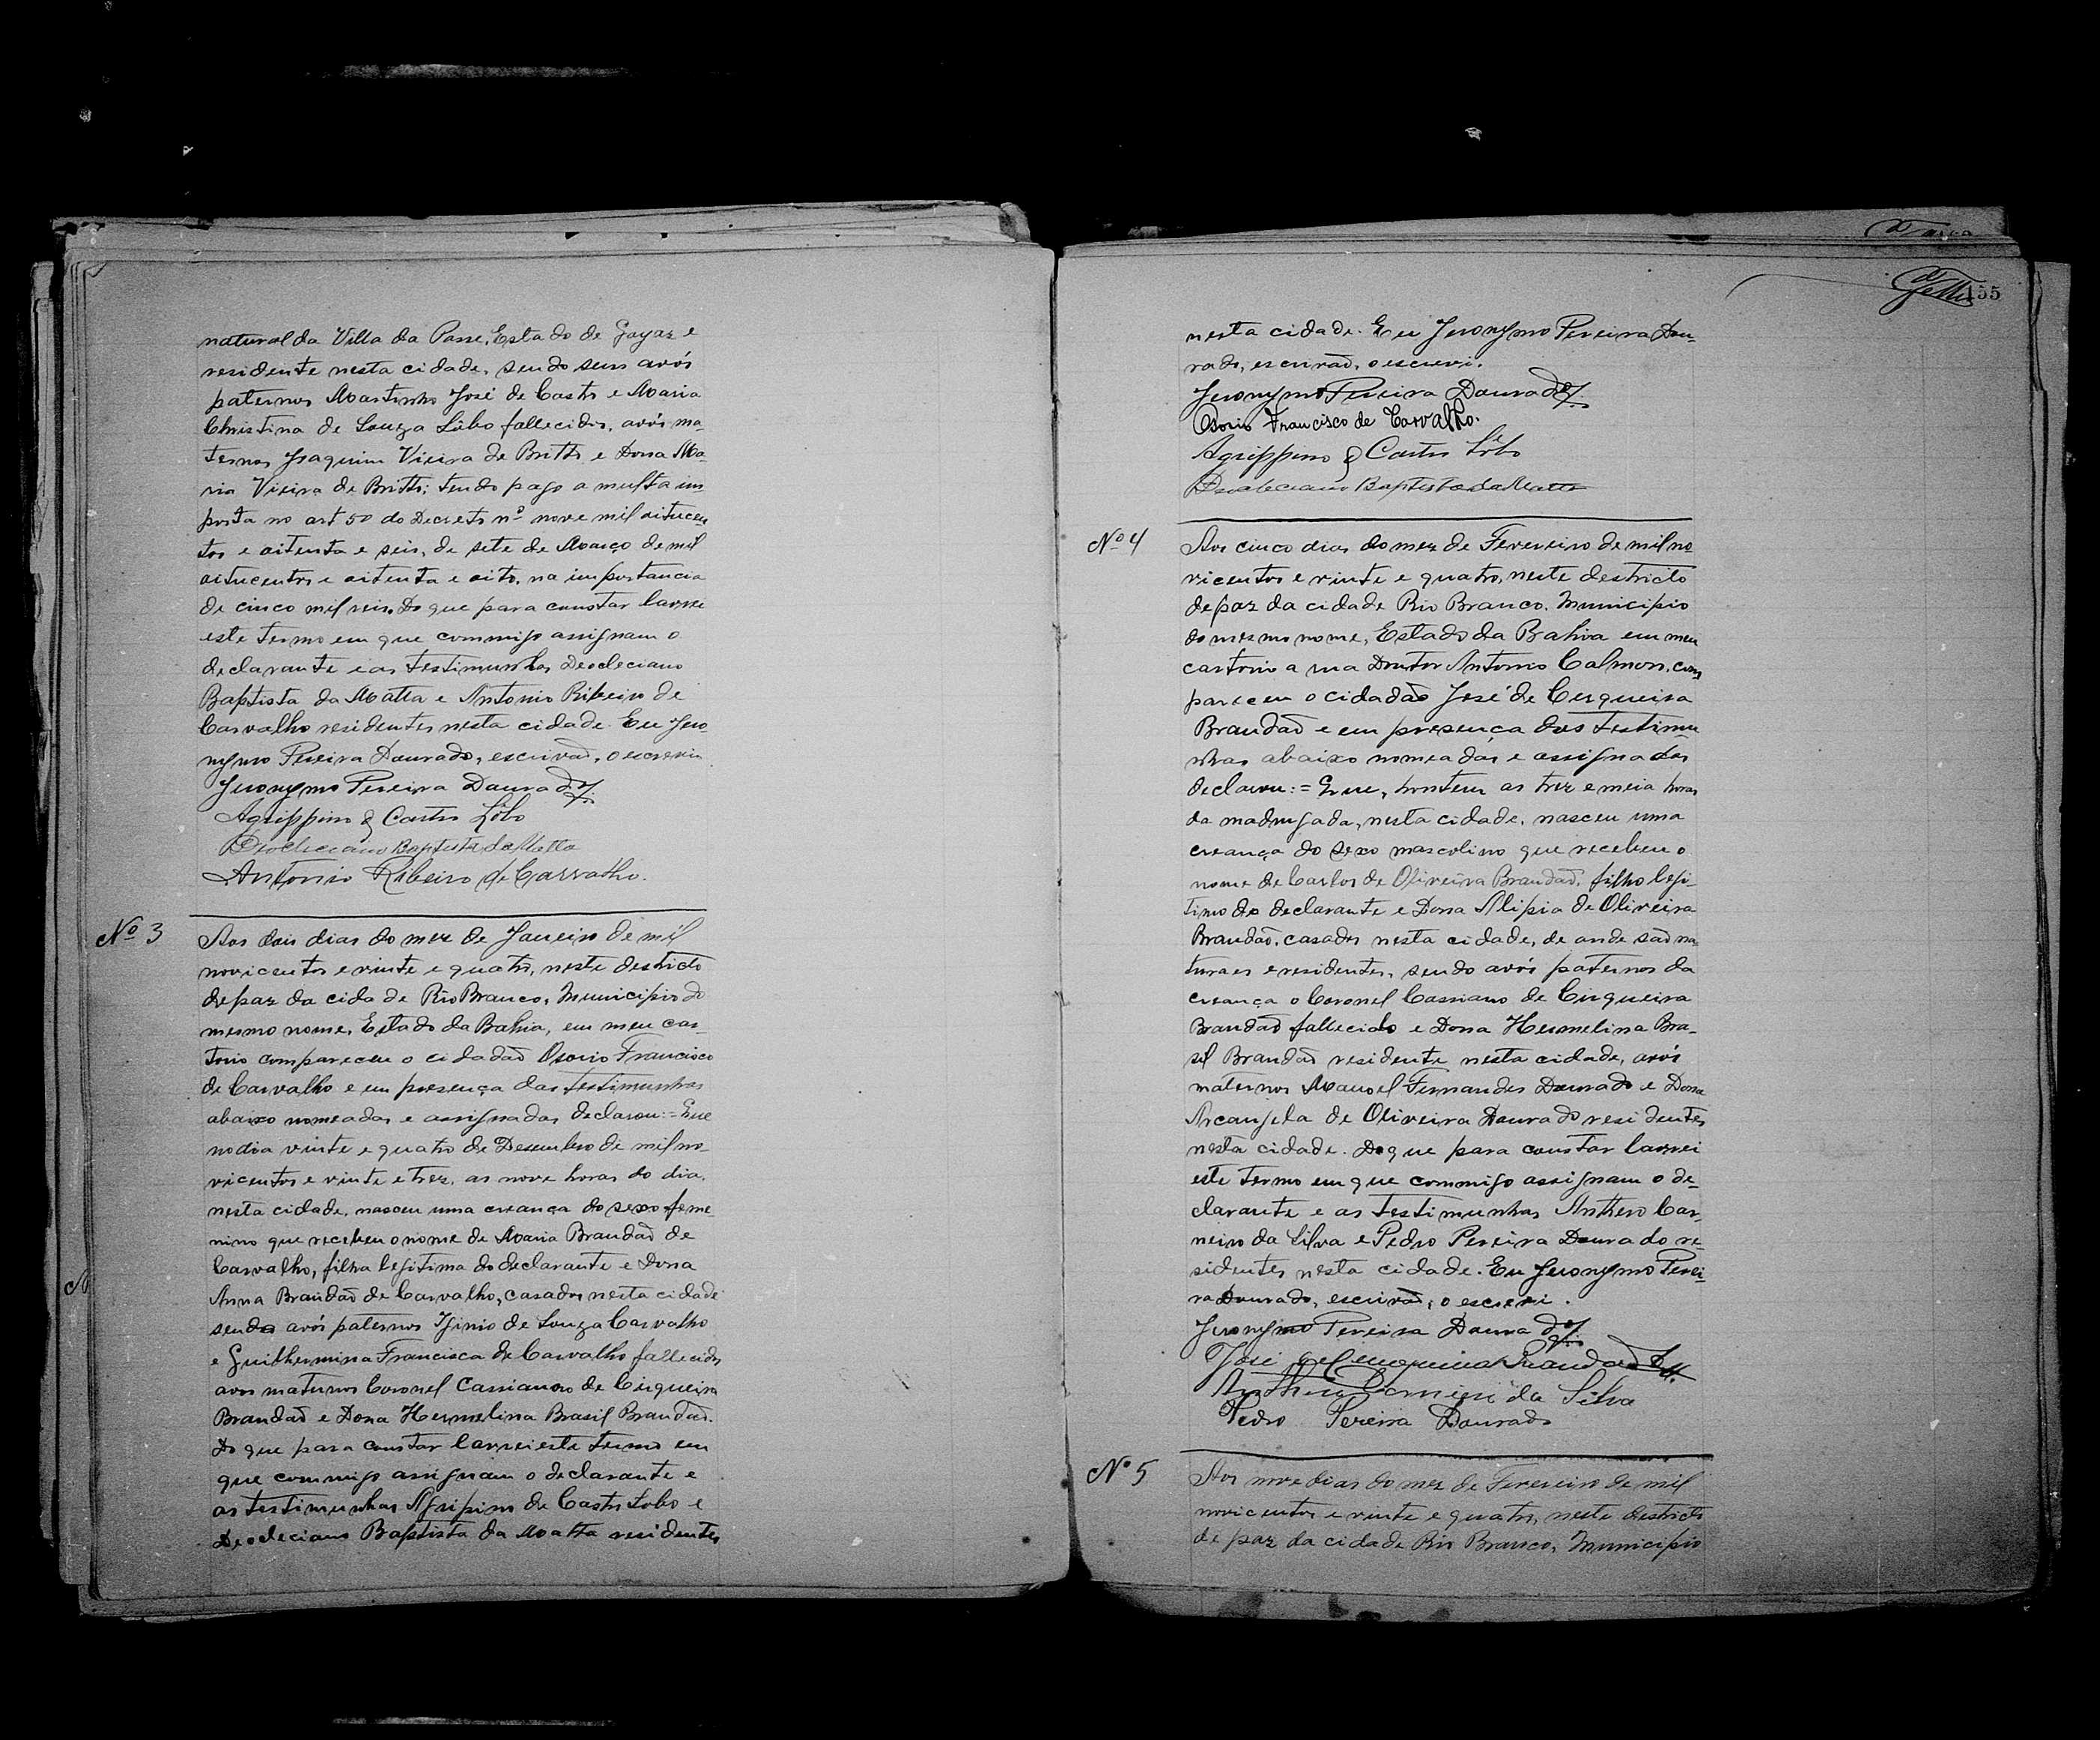 natural da Villa da Posse, Estado de Goyaz e
residente nesta cidade, sendo seus avós
paternos Martinho José de Castro e Maria
Christina de Souza Lôbo fallecidos, avós ma-
ternos Joaquim Vieira de Britto e Dona Ma-
ria Vieira de Britto; tendo pago a multa im
posta no art 50 do Decreto nº nove mil oitocen
tos e oitenta e seis, de sete de Março de mil
oitocentos e oitenta e oito, na importancia
de cinco mil reis. Do que para constar lavrei
este termo em que commigo assignam o
declarante e as testimunhas Deocleciano
Baptista da Matta e Antonio Ribeiro de
Carvalho residentes nesta cidade. Eu Jero-
nymo Pereira Dourado, escrivaõ, o escrevi
Jeronymo Pereira Dourado
Agrippino de Castro Lôbo
Deocleciano Baptista da Matta
Antonio Ribeiro de Carvalho.
Nº 3
Aos dois dias do mez de Janeiro de mil
novicentos e vinte e quatro, neste destricto
de paz da cidade Rio Branco, Municipio do
mesmo nome, Estado da Bahia, em meu car-
torio compareceu o cidadaõ Osorio Francisco
de Carvalho e em presença das testimunhas
abaixo nomeadas e assignadas declarou:= Que
no dia vinte e quatro de Desembro de mil no-
vicentos e vinte e trez, as nove horas do dia,
nesta cidade, nasceu uma creança do sexo feme
nino que recebeu o nome de Maria Brandaõ de
Carvalho, filha legitima do declarante e Dona
Anna Brandaõ de Carvalho, casados nesta cidade
sendo avós paternos Iginio de Souza Carvalho
e Guilhermina Francisca de Carvalho fallecidos
avos maternos Coronel Cassiano de Cirqueira
Brandaõ e Dona Hermelina Brasil Brandaõ.
Do que para constar lavrei este termo em
que commigo assignam o declarante e
as testimunhas Agripino de Castro Lobo e
Deocleciano Baptista da Matta residentes
155
nesta cidade. Eu Jeronymo Pereira Dou-
rado, escrivaõ, o escrevi.
Jeronymo Pereira Dourado
Osorio Francisco de Carvalho.
Agrippino de Castro Lôbo
Deocleciano Baptista da Matta
Nº 4
Aos cinco dias do mez de Fevereiro de mil no
vicentos e vinte e quatro, neste destricto
de paz da cidade Rio Branco, Municipio
do mesmo nome, Estado da Bahia em meu
cartorio a rua Doutor Antonio Calmon, com
pareceu o cidadaõ José de Cerqueira
Brandaõ e em presença das testimu
nhas abaixo nomeadas e assignadas
declarou:= Que, hontem as trez e meia horas
da madrugada, nesta cidade, nasceu uma
creança do sexo mascolino que recebeu o
nome de Carlos de Oliveira Brandaõ, filho legi-
timo do declarante e Dona Alipia de Oliveira
Brandaõ, casados nesta cidade, de onde saõ na
turaes e residentes, sendo avós paternos da
creança o Coronel Cassiano de Cirqueira
Brandaõ fallecido e Dona Hermelina Bra-
sil Brandaõ residente nesta cidade, avós
maternos Manoel Fernandes Dourado e Dona
Arcangela de Oliveira Dourado residentes
nesta cidade. Do que para constar lavrei
este termo em que commigo assignam o de-
clarante e as testimunhas Anthero Car-
neiro da Silva e Pedro Pereira Dourado re-
sidentes nesta cidade. Eu Jeronymo Perei-
ra Dourado, escrivaõ, o escrevi.
Jeronymo Pereira Dourado
José de Cerqueira Brandaõ
Anthero Carneiro da Silva
Pedro Pereira Dourado
Nº 5
Aos nove dias do mez de Fevereiro de mil
novicentos e vinte e quatro, neste destricto
de paz da cidade Rio Branco, Municipio